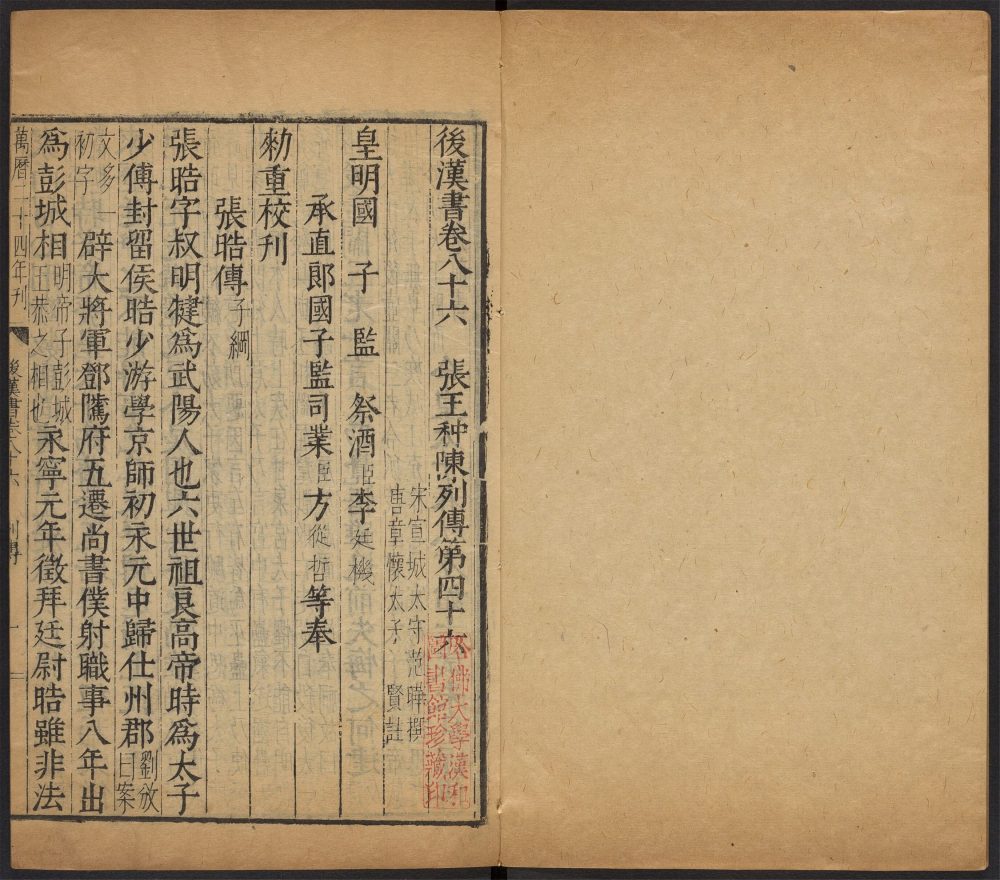 後漢書卷八十六 張王种陳列傳第四十六
宋宣城太守范曄撰
唐章懷太子賢註
皇明國子監祭酒臣李廷機
承直郎國子監司業臣方從哲等奉
勑重校刊
張晧傳子綱
張晧字叔明犍爲武陽人也六世祖良高帝時爲太子
少傅封留侯晧少游學京師初永元中歸仕州郡劉攽曰案
文多一初字辟大將軍鄧騭府五遷尚書僕射職事八年出
爲彭城相明帝子彭城王恭之相也永寧元年徵拜廷尉晧雖非法
萬曆二十四年刊 後漢書卷八十六 列傳 一
哈佛大學漢和
圖書館珍藏印